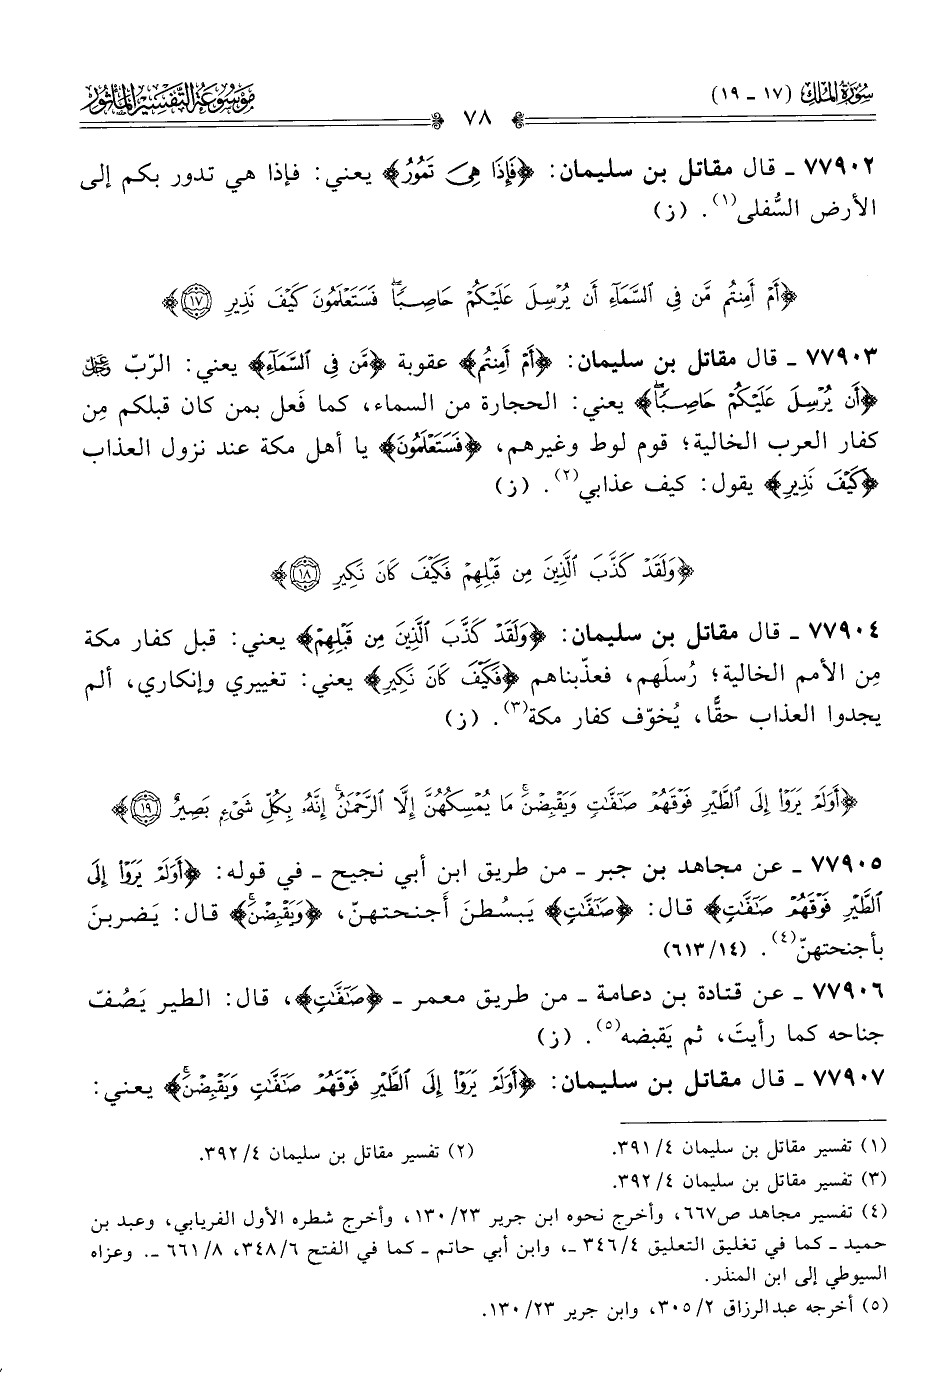 سُورَةُ المُلك (١٧ - ١٩)
٧٨
مَوْسُوعَةُ التَّفْسِيرُ المَأْثُور
٧٧٩٠٢ - قال مقاتل بن سليمان: ﴿فَإِذَا هِىَ تَمُورُ﴾ يعني: فإذا هي تدور بكم إلى
الأرض السُّفلى(١). (ز)
﴿أَمْ أَمِنتُم مَّن فِى ٱلسَّمَآءِ أَن يُرْسِلَ عَلَيْكُمْ حَاصِبًاۖ فَسَتَعْلَمُونَ كَيْفَ نَذِيرِ ١٧﴾
٧٧٩٠٣ - قال مقاتل بن سليمان: ﴿أَمْ أَمِنتُم﴾ عقوبة ﴿مَّن فِى ٱلسَّمَآءِ﴾ يعني: الربّ ﷻ
﴿أَن يُرْسِلَ عَلَيْكُمْ حَاصِبًاۖ﴾ يعني: الحجارة من السماء، كما فَعل بمن كان قبلكم مِن
كفار العرب الخالية؛ قوم لوط وغيرهم، ﴿فَسَتَعْلَمُونَ﴾ يا أهل مكة عند نزول العذاب
﴿كَيْفَ نَذِيرِ﴾ يقول: كيف عذابي(٢). (ز)
﴿وَلَقَدْ كَذَّبَ ٱلَّذِينَ مِن قَبْلِهِمْ فَكَيْفَ كَانَ نَكِيرِ ١٨﴾
٧٧٩٠٤ - قال مقاتل بن سليمان: ﴿وَلَقَدْ كَذَّبَ ٱلَّذِينَ مِن قَبْلِهِمْ﴾ يعني: قبل كفار مكة
مِن الأمم الخالية؛ رُسلَهم، فعذّبناهم ﴿فَكَيْفَ كَانَ نَكِيرِ﴾ يعني: تغييري وإنكاري، ألم
يجدوا العذاب حقًّا، يُخوّف كفار مكة(٣). (ز)
﴿أَوَلَمْ يَرَوْا۟ إِلَى ٱلطَّيْرِ فَوْقَهُمْ صَٰٓفَّٰتٍ وَيَقْبِضْنَۚ مَا يُمْسِكُهُنَّ إِلَّا ٱلرَّحْمَٰنُۚ إِنَّهُۥ بِكُلِّ شَىْءٍۭ بَصِيرٌ ١٩﴾
٧٧٩٠٥ - عن مجاهد بن جبر - من طريق ابن أبي نجيح - في قوله: ﴿أَوَلَمْ يَرَوْا۟ إِلَى
ٱلطَّيْرِ فَوْقَهُمْ صَٰٓفَّٰتٍ﴾ قال: ﴿صَٰٓفَّٰتٍ﴾ يَبسُطنَ أجنحتهنّ، ﴿وَيَقْبِضْنَۚ﴾ قال: يَضربنَ
بأجنحتهنّ(٤). (٦١٣/١٤)
٧٧٩٠٦ - عن قتادة بن دعامة - من طريق معمر - ﴿صَٰٓفَّٰتٍ﴾، قال: الطير يَصُفّ
جناحه كما رأيتَ، ثم يَقبضه(٥). (ز)
٧٧٩٠٧ - قال مقاتل بن سليمان: ﴿أَوَلَمْ يَرَوْا۟ إِلَى ٱلطَّيْرِ فَوْقَهُمْ صَٰٓفَّٰتٍ وَيَقْبِضْنَۚ﴾ يعني:
(١) تفسير مقاتل بن سليمان ٣٩١/٤. (٢) تفسير مقاتل بن سليمان ٣٩٢/٤.
(٣) تفسير مقاتل بن سليمان ٣٩٢/٤.
(٤) تفسير مجاهد ص٦٦٧، وأخرج نحوه ابن جرير ١٣٠/٢٣، وأخرج شطره الأول الفريابي، وعبد بن
حميد - كما في تغليق التعليق ٣٤٦/٤ -، وابن أبي حاتم - كما في الفتح ٣٤٨/٦، ٦٦١/٨ -. وعزاه
السيوطي إلى ابن المنذر.
(٥) أخرجه عبدالرزاق ٣٠٥/٢، وابن جرير ١٣٠/٢٣.